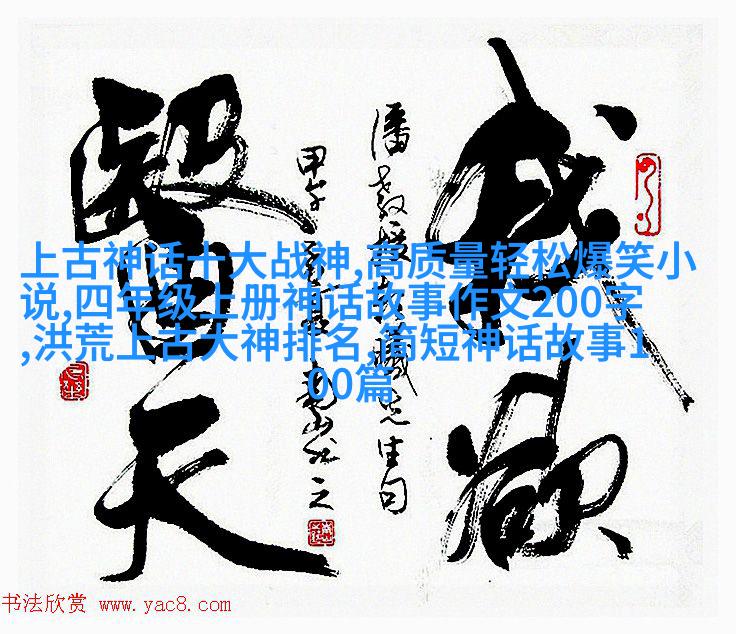 我欲
醫天
潘教授先生句
甲午
上古神话十大战神,高质量轻松爆笑小
说,四年级上册神话故事作文200字
,洪荒上古大神排名,简短神话故事1
00篇
书法欣赏 www.yac8.com